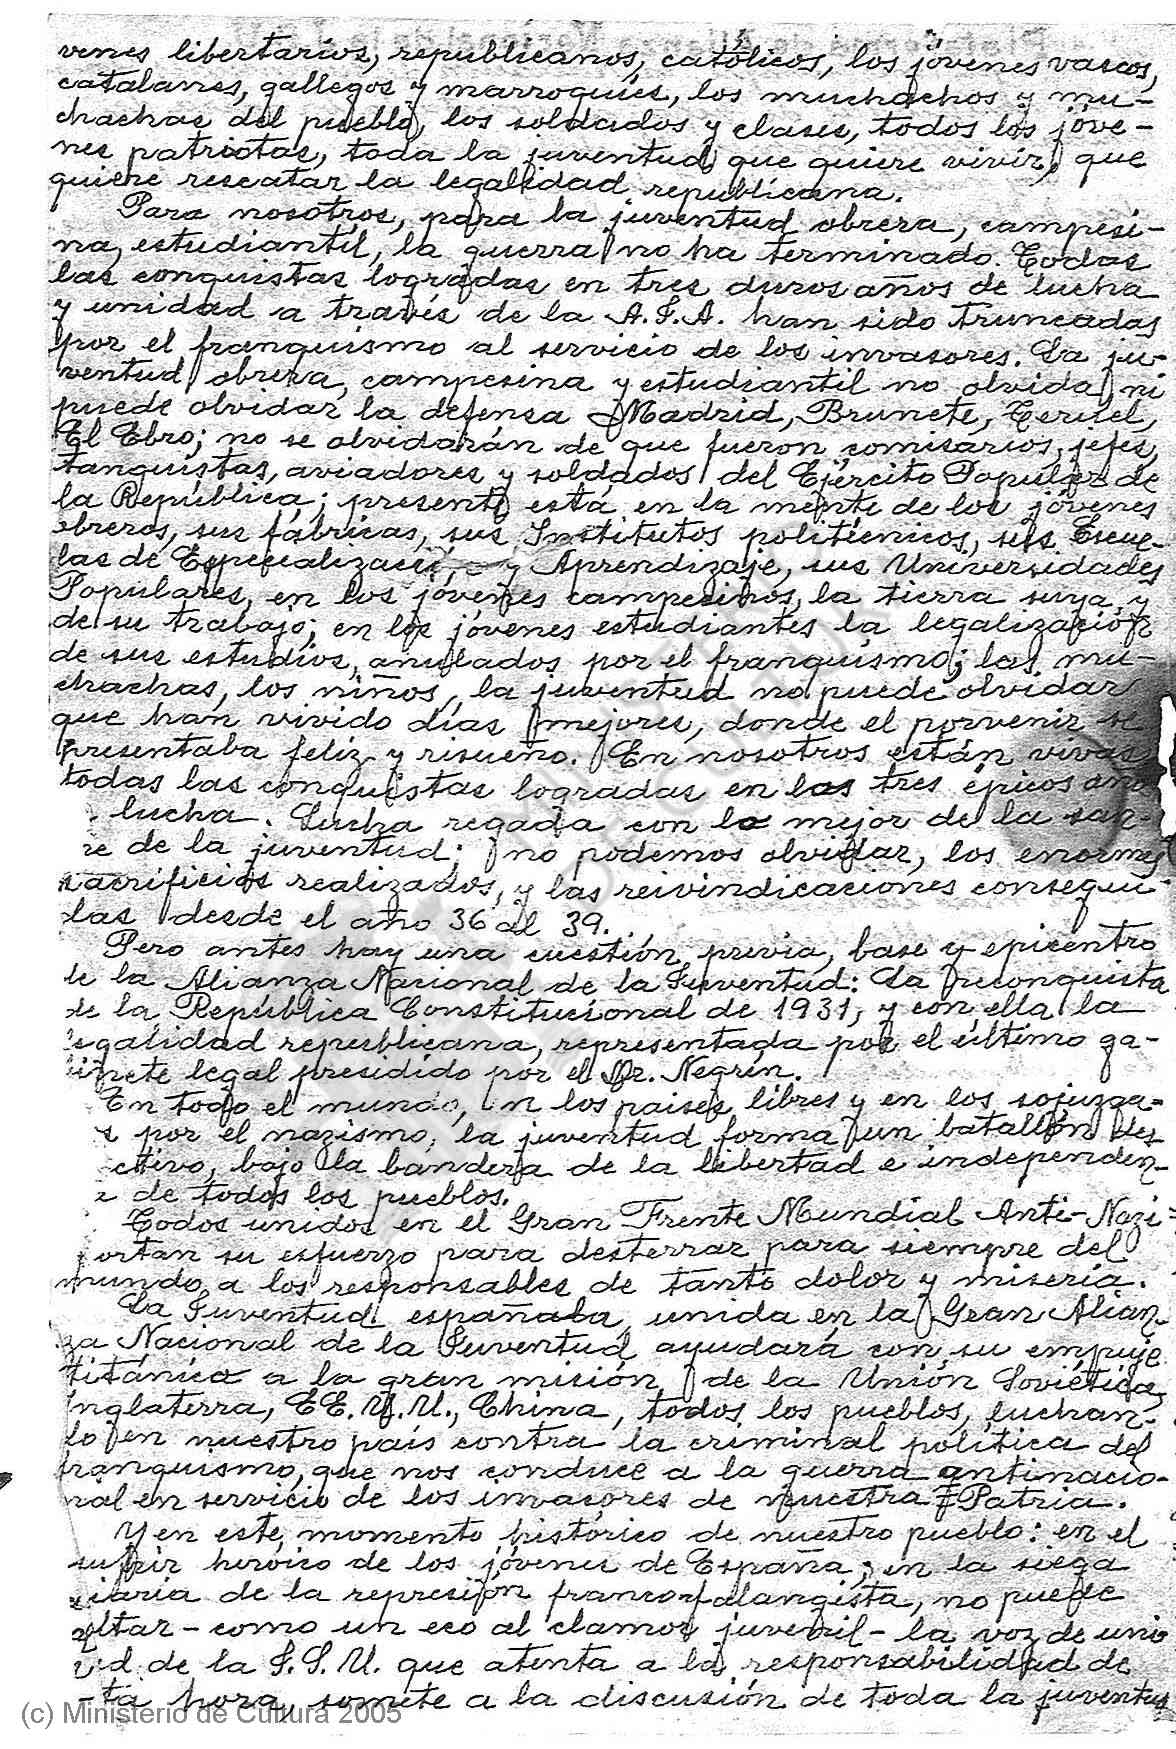 venes libertarios, republicanos, católicos, los jóvenes vascos,
catalanes, gallegos y marroquíes, los muchachos y mu-
chachas del pueblo, los soldados y clases, todos los jóve-
nes patriotas, toda la juventud que quiere vivir, que
quiere rescatar la legalidad republicana.
Para nosotros, para la juventud obrera, campesi-
na, estudiantil, la guerra no ha terminado. Todas
las conquistas logradas en tres duros años de lucha
y unidad a través de la A.J.A. han sido truncadas
por el franquismo al servicio de los invasores. La ju-
ventud obrera, campesina y estudiantil no olvida, ni
puede olvidar la defensa Madrid, Brunete, Teruel,
El Ebro; no se olvidarán de que fueron comisarios, jefes,
tanquistas, aviadores y soldados del Ejército Popular de
la República; presente está en la mente de los jóvenes
obreros, sus fábricas, sus Institutos politécnicos, sus Escue-
las de Especializaci y Aprendizaje, sus Universidades
Populares, en los jóvenes campesinos, la tierra suya, y
de su trabajo; en los jóvenes estudiantes la legalización
de sus estudios, anulados por el franquismo; las mu-
chachas, los niños, la juventud no puede olvidar
que han vivido días mejores, donde el porvenir se
presentaba feliz y risueño. En nosotros están vivas
todas las conquistas logradas en los tres épicos año
lucha. Lucha regada con lo mejor de la san-
re de la juventud; no podemos olvidar, los enormes
sacrificios realizados, y las reivindicaciones consegui-
das desde el año 36 al 39.
Pero antes hay una cuestión previa, base y epicentro
de la Alianza Nacional de la Juventud: La reconquista
de la República Constitucional de 1931, y con ella la
legalidad republicana, representada por el último ga-
binete legal presidido por el Dr. Negrín.
En todo el mundo, en los paises libres y en los sojuzga-
s por el nazismo, la juventud forma un batallón des
ctivo, bajo la bandera de la libertad e independen-
de todos los pueblos.
Todos unidos en el Gran Frente Mundial Anti-Nazi
ortan su esfuerzo para desterrar para siempre del
mundo a los responsables de tanto dolor y miseria.
La Juventud española, unida en la Gran Alian-
za Nacional de la Juventud ayudará con su empuje
titánico a la gran misión de la Unión Soviética,
Inglaterra, EE.U.U., China, todos los pueblos, luchan-
do en nuestro país contra la criminal política del
franquismo, que nos conduce a la guerra antinacio-
nal en servicio de los invasores de nuestra Patria.
Y en este momento histórico de nuestro pueblo: en el
sufrir heróico de los jóvenes de España; en la siega
diaria de la represión franco-falangista, no puede
altar - como un eco al clamor juvenil - la voz de uni
d de la J.S.U. que atenta a la responsabilidad de
ta hora, somete a la discusión de toda la juventud
(c) Ministerio de Cultura 2005